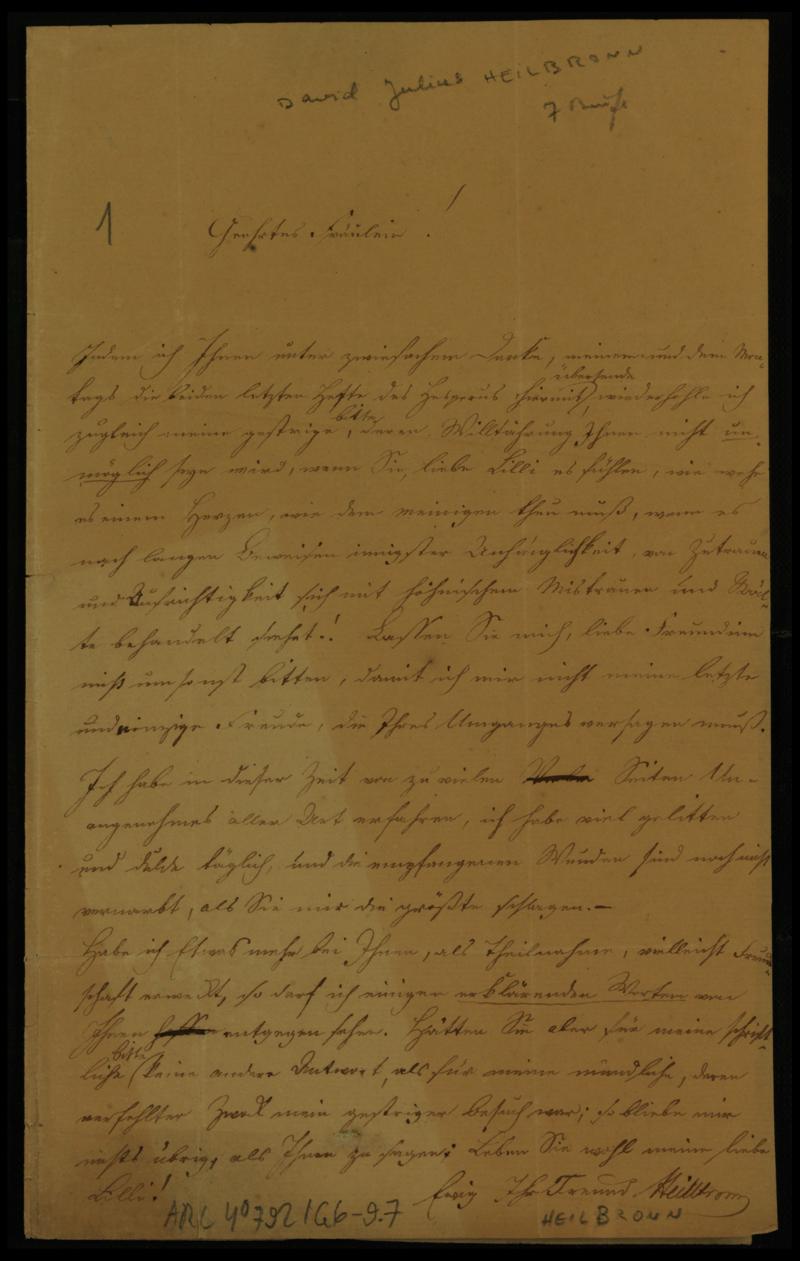 David Julius HEILBRONN
7 Briefe
1
Geehrtes Fräulein!
Indem ich Ihnen unter zwiefachem Danke, meinem und dem
tags die beiden letzten Hefte des Hesperus hiermit übersende, wiederhohle ich
zugleich meine gestrige bitte, deren Willfährung Ihnen nicht un-
möglich seyn wird, wenn Sie, liebe Lilli es fühlen, wie wehe
es einem Herzen, wie dem meinigen thun muß, wenn es
nach langen Beweisen innigster Anhänglichkeit, von Zutrauen
und Aufrichtigkeit sich mit höhnischem Mistrauen und Käl-
te behandelt siehet! Lassen Sie mich, liebe Freundinn
nicht umsonst bitten, damit ich mir nicht meine letzte
und einzige Freude, die Ihres Umganges versagen muß.
Ich habe in dieser Zeit von zu vielen Seiten Un-
angenehmes aller Art erfahren, ich habe viel gelitten
und dulde täglich, und die empfangenen Wunden sind noch nicht
vernarbt, als Sie mir die größte schlagen.—
Habe ich Etwas mehr bei Ihnen, als Theilnahme, vielleicht Freund-
schaft erweckt, so darf ich einigen erklärenden Worten von
Ihnen entgegen sehen. Hätten Sie aber für meine schrift-
liche bitte keine andere Antwort, als für meine mündliche, deren
verfehlter Zweck mein gestriger Besuch war; so bliebe mir
nichts übrig, als Ihnen zu sagen: Leben Sie wohl meine liebe
Lilli!
Ewig Ihr Freund Heilbronn
ARC 40792/G6-9.7
HEILBRONN